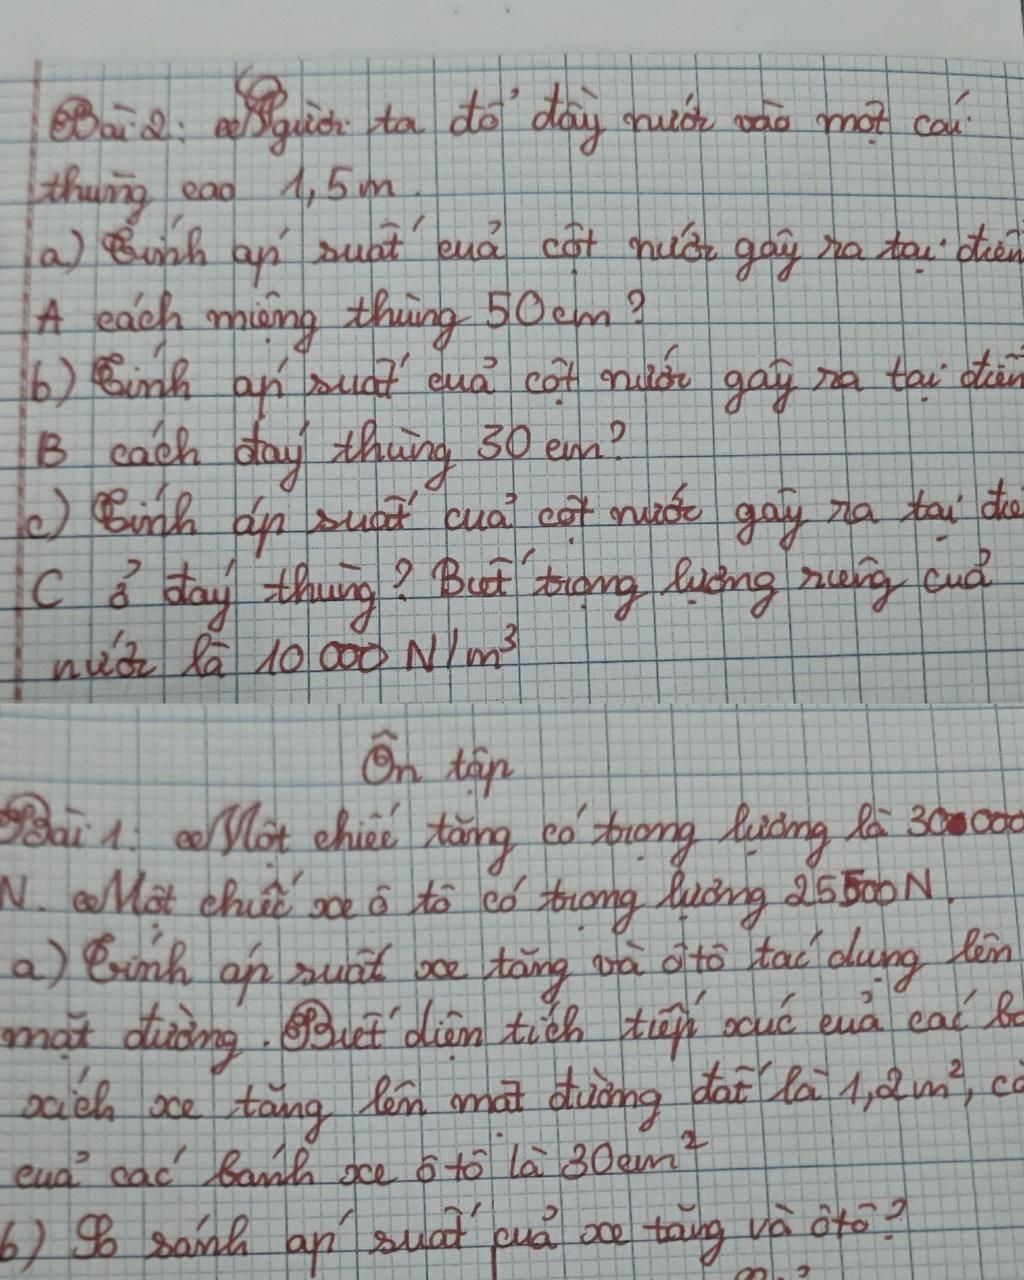 Bài 2: Người ta đổ đầy nước vào một cái
thùng cao 1,5m.
a) Tính áp suất của cột nước gây ra tại điểm
A cách miệng thùng 50cm?
b) Tính áp suất của cột nước gây ra tại điểm
B cách đáy thùng 30cm?
c) Tính áp suất của cột nước gây ra tại
C ở đáy thùng? Biết trọng lượng riêng của
nước là 10 000 N/m³
Ôn tập
Bài 1: Một chiếc tăng có trọng lượng là 30 000
N. Một chiếc xe ô tô có trọng lượng 25500N.
a) Tính áp suất xe tăng và ôtô tác dụng lên
mặt đường. Biết diện tích tiếp xúc của các
xích xe tăng lên mặt đường đất là 1,2m²,
của các bánh xe ôtô là 30cm²
b) So sánh áp suất của xe tăng và ôtô?